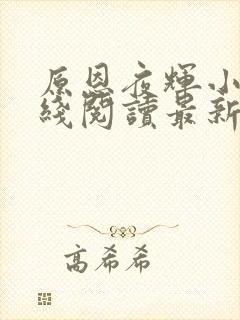 原恩夜輝小
綫閱讀最新
高希希